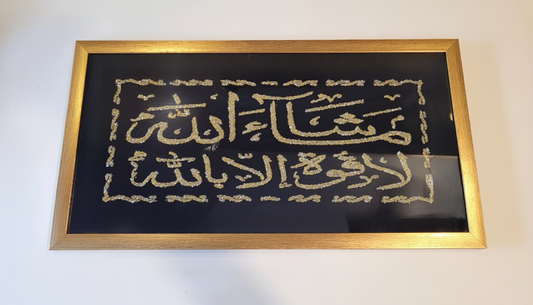 مَا شَاءَ اللّٰهُ
لَا قُوَّةَ إِلَّا بِاللّٰهِ